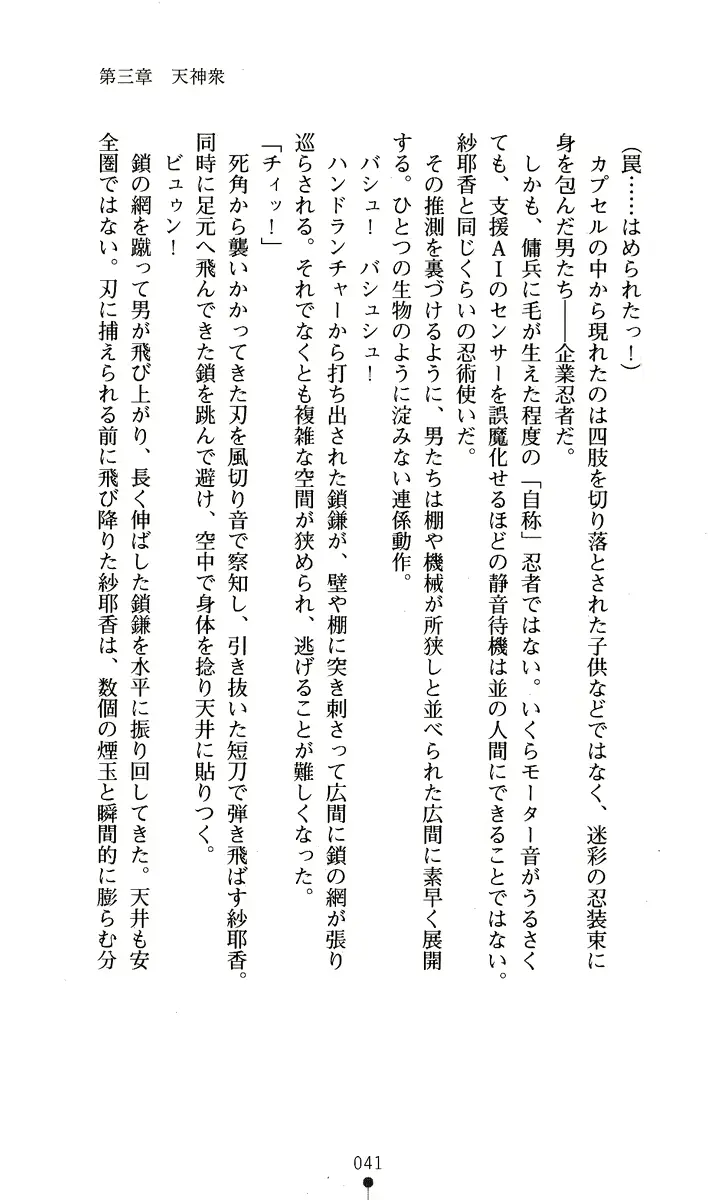 第三章　天神衆
（罠……はめられたっ！）
　カプセルの中から現れたのは四肢を切り落とされた子供などではなく、迷彩の忍装束に
身を包んだ男たち――企業忍者だ。
　しかも、傭兵に毛が生えた程度の「自称」忍者ではない。いくらモーター音がうるさく
ても、支援ＡＩのセンサーを誤魔化せるほどの静音待機は並の人間にできることではない。
紗耶香と同じくらいの忍術使いだ。
　その推測を裏づけるように、男たちは棚や機械が所狭しと並べられた広間に素早く展開
する。ひとつの生物のように淀みない連係動作。
　バシュ！　バシュシュ！
　ハンドランチャーから打ち出された鎖鎌が、壁や棚に突き刺さって広間に鎖の網が張り
巡らされる。それでなくとも複雑な空間が狭められ、逃げることが難しくなった。
「チィッ！」
　死角から襲いかかってきた刃を風切り音で察知し、引き抜いた短刀で弾き飛ばす紗耶香。
同時に足元へ飛んできた鎖を跳んで避け、空中で身体を捻り天井に貼りつく。
　ビュゥン！
　鎖の網を蹴って男が飛び上がり、長く伸ばした鎖鎌を水平に振り回してきた。天井も安
全圏ではない。刃に捕えられる前に飛び降りた紗耶香は、数個の煙玉と瞬間的に膨らむ分
041